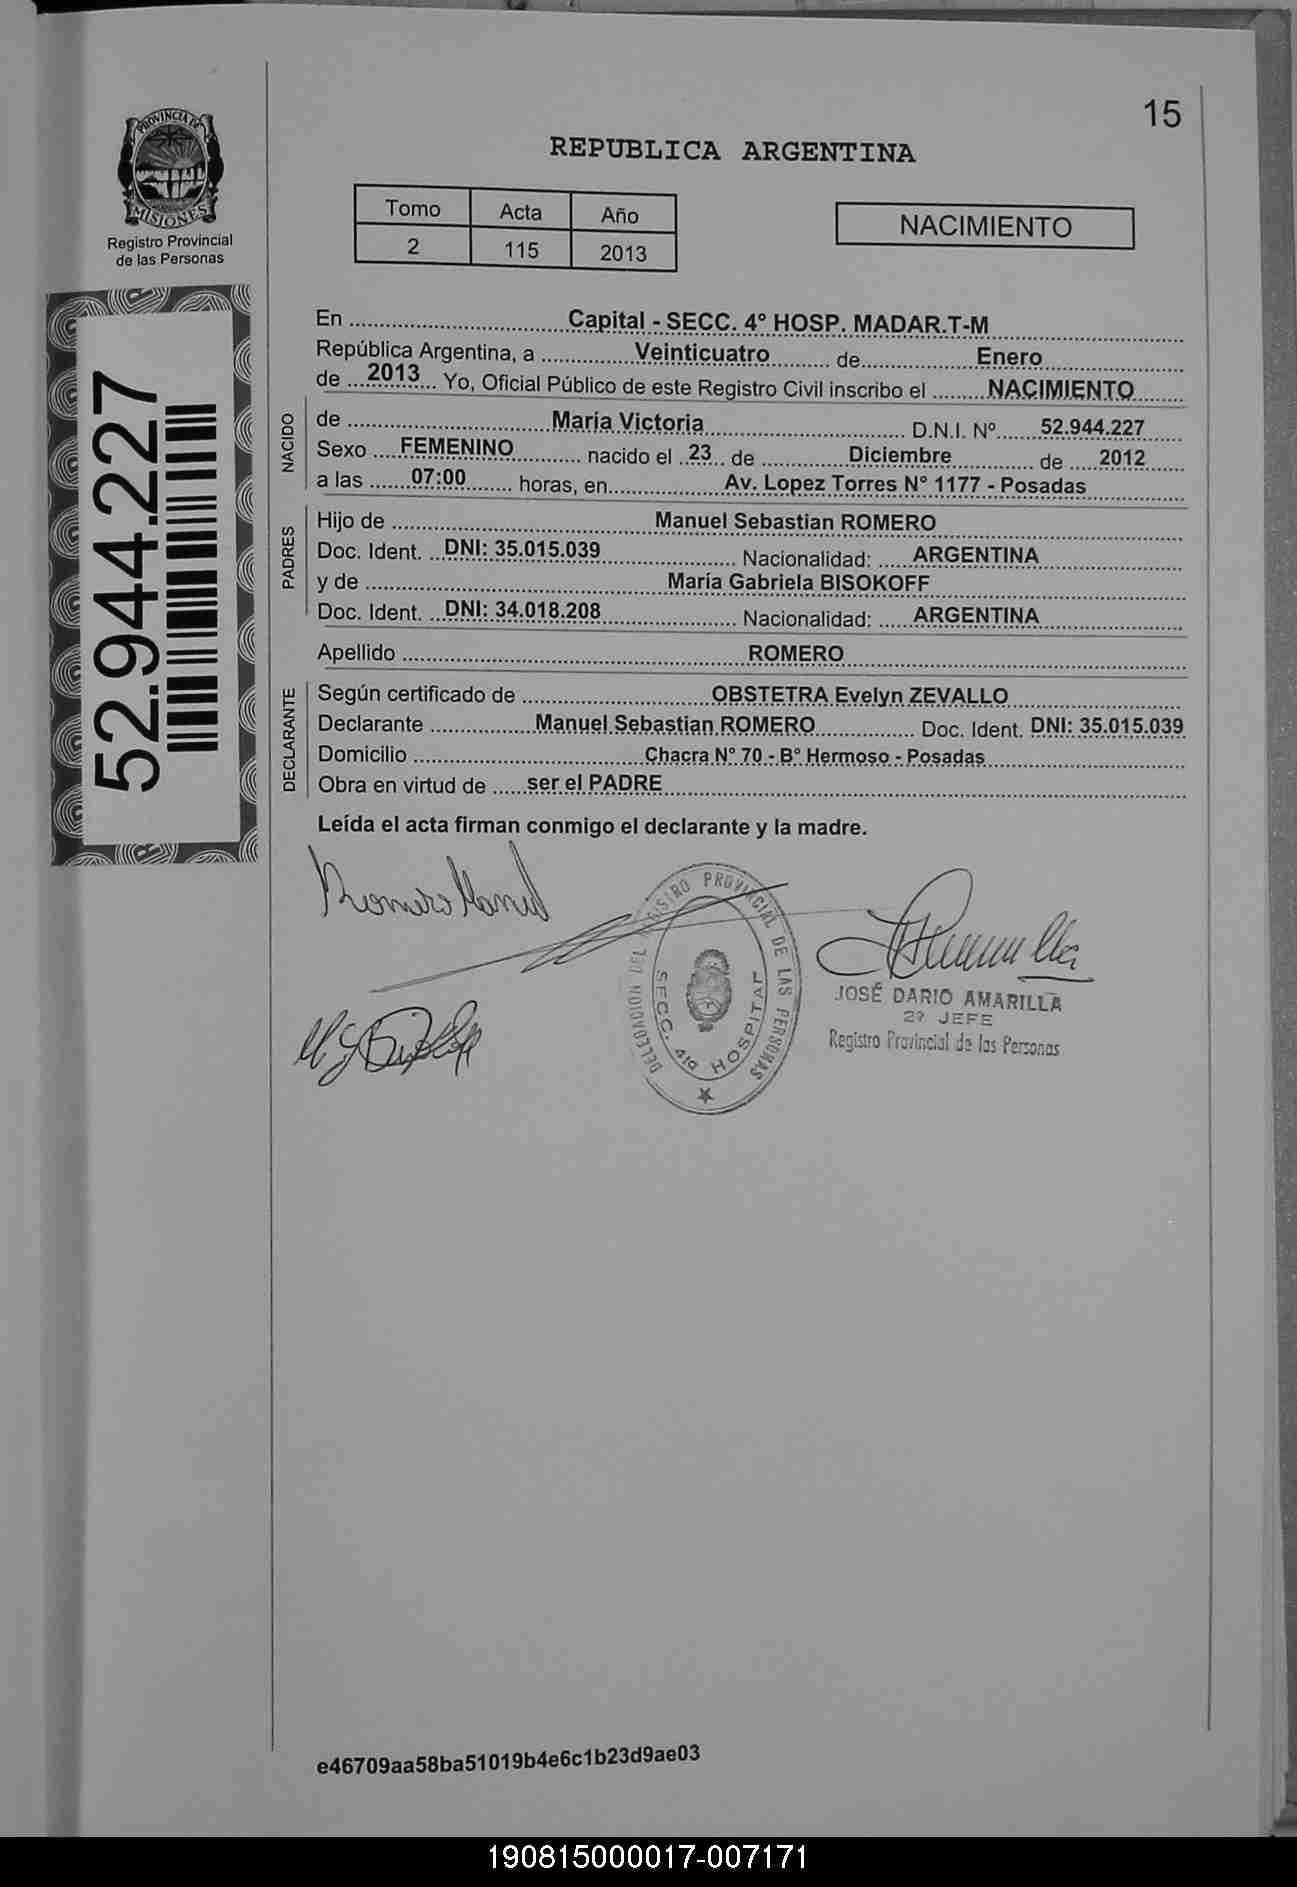 15
PROVINCIA DE
MISIONES
Registro Provincial
de las Personas
REPUBLICA ARGENTINA
Tomo Acta Año
2 115 2013
NACIMIENTO
52.944.227
En Capital - SECC. 4° HOSP. MADAR.T-M
República Argentina, a Veinticuatro de Enero
de 2013 Yo, Oficial Público de este Registro Civil inscribo el NACIMIENTO
NACIDO
de María Victoria D.N.I. Nº 52.944.227
Sexo FEMENINO nacido el 23 de Diciembre de 2012
a las 07:00 horas, en Av. Lopez Torres N° 1177 - Posadas
PADRES
Hijo de Manuel Sebastian ROMERO
Doc. Ident. DNI: 35.015.039 Nacionalidad: ARGENTINA
y de María Gabriela BISOKOFF
Doc. Ident. DNI: 34.018.208 Nacionalidad: ARGENTINA
Apellido ROMERO
DECLARANTE
Según certificado de OBSTETRA Evelyn ZEVALLO
Declarante Manuel Sebastian ROMERO Doc. Ident. DNI: 35.015.039
Domicilio Chacra N° 70 - B° Hermoso - Posadas
Obra en virtud de ser el PADRE
Leída el acta firman conmigo el declarante y la madre.
Romero Manuel
DELEGACION DEL REGISTRO PROVINCIAL DE LAS PERSONAS
SECC. 4ta HOSPITAL
JOSÉ DARIO AMARILLA
2º JEFE
Registro Provincial de las Personas
e46709aa58ba51019b4e6c1b23d9ae03
190815000017-007171